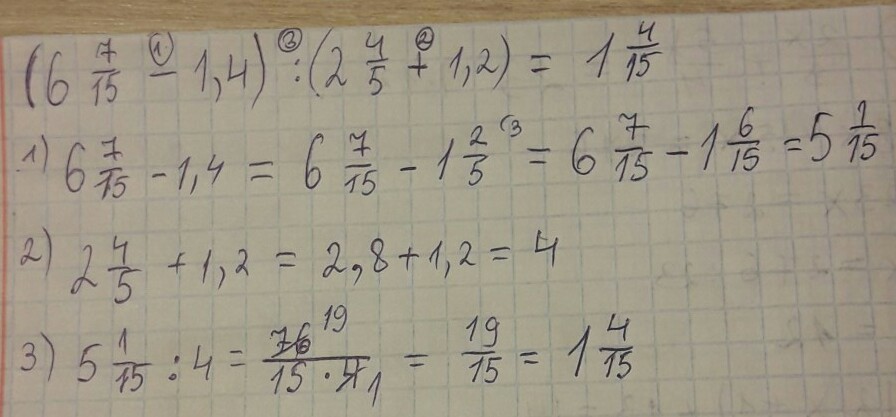 (6 7/15 - 1,4) : (2 4/5 + 1,2) = 1 4/15
1) 6 7/15 - 1,4 = 6 7/15 - 1 2/5 (3 = 6 7/15 - 1 6/15 = 5 1/15
2) 2 4/5 + 1,2 = 2,8 + 1,2 = 4
3) 5 1/15 : 4 = 76 19/15 · 4 1 = 19/15 = 1 4/15